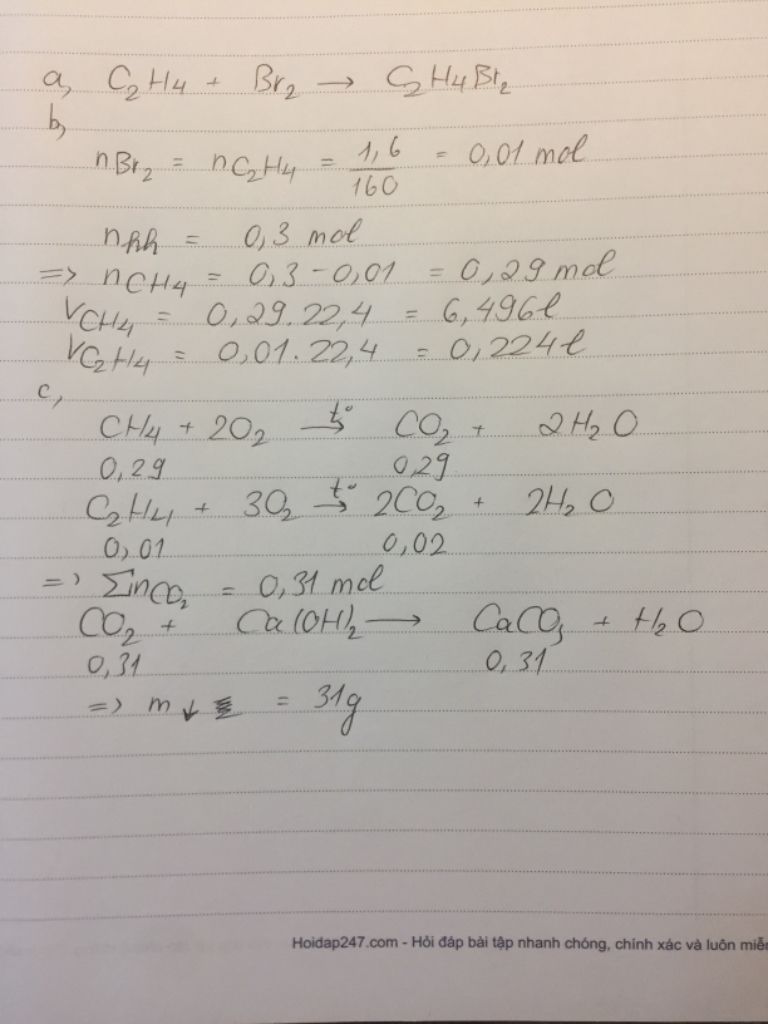 a, C₂H₄ + Br₂ → C₂H₄Br₂
b,
nBr₂ = nC₂H₄ = 1,6/160 = 0,01 mol
nhh = 0,3 mol
=> nCH₄ = 0,3 - 0,01 = 0,29 mol
VCH₄ = 0,29.22,4 = 6,496l
VC₂H₄ = 0,01.22,4 = 0,224l
c,
CH₄ + 2O₂ →t° CO₂ + 2H₂O
0,29 0,29
C₂H₄ + 3O₂ →t° 2CO₂ + 2H₂O
0,01 0,02
=> ΣnCO₂ = 0,31 mol
CO₂ + Ca(OH)₂ → CaCO₃ + H₂O
0,31 0,31
=> m↓ = 31g
Hoidap247.com - Hỏi đáp bài tập nhanh chóng, chính xác và luôn miễ